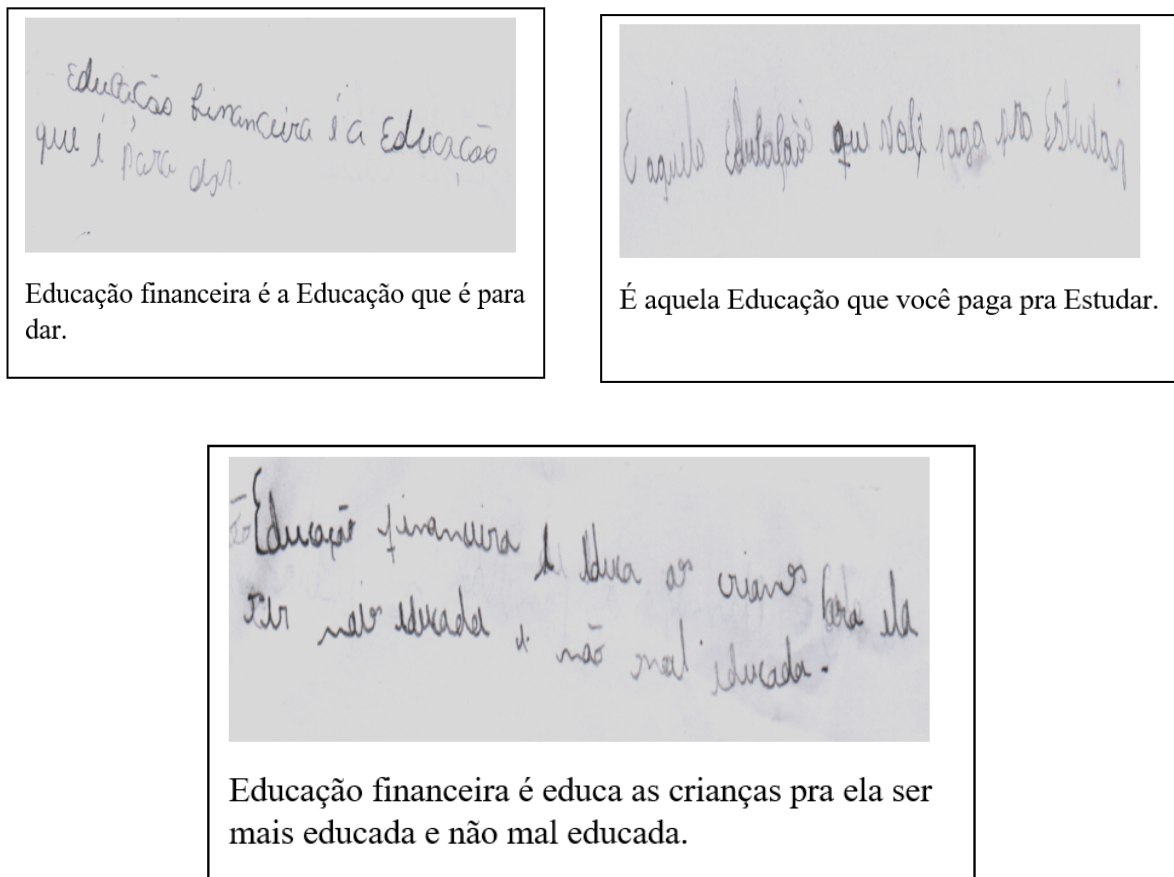 Educação financeira é a Educação
que é para dar.
Educação financeira é a Educação que é para
dar.
É aquela Educação que você paga pra Estudar
É aquela Educação que você paga pra Estudar.
Educação financeira é educa as crianças para ela
ser mais educada e não mal educada.
Educação financeira é educa as crianças pra ela ser
mais educada e não mal educada.